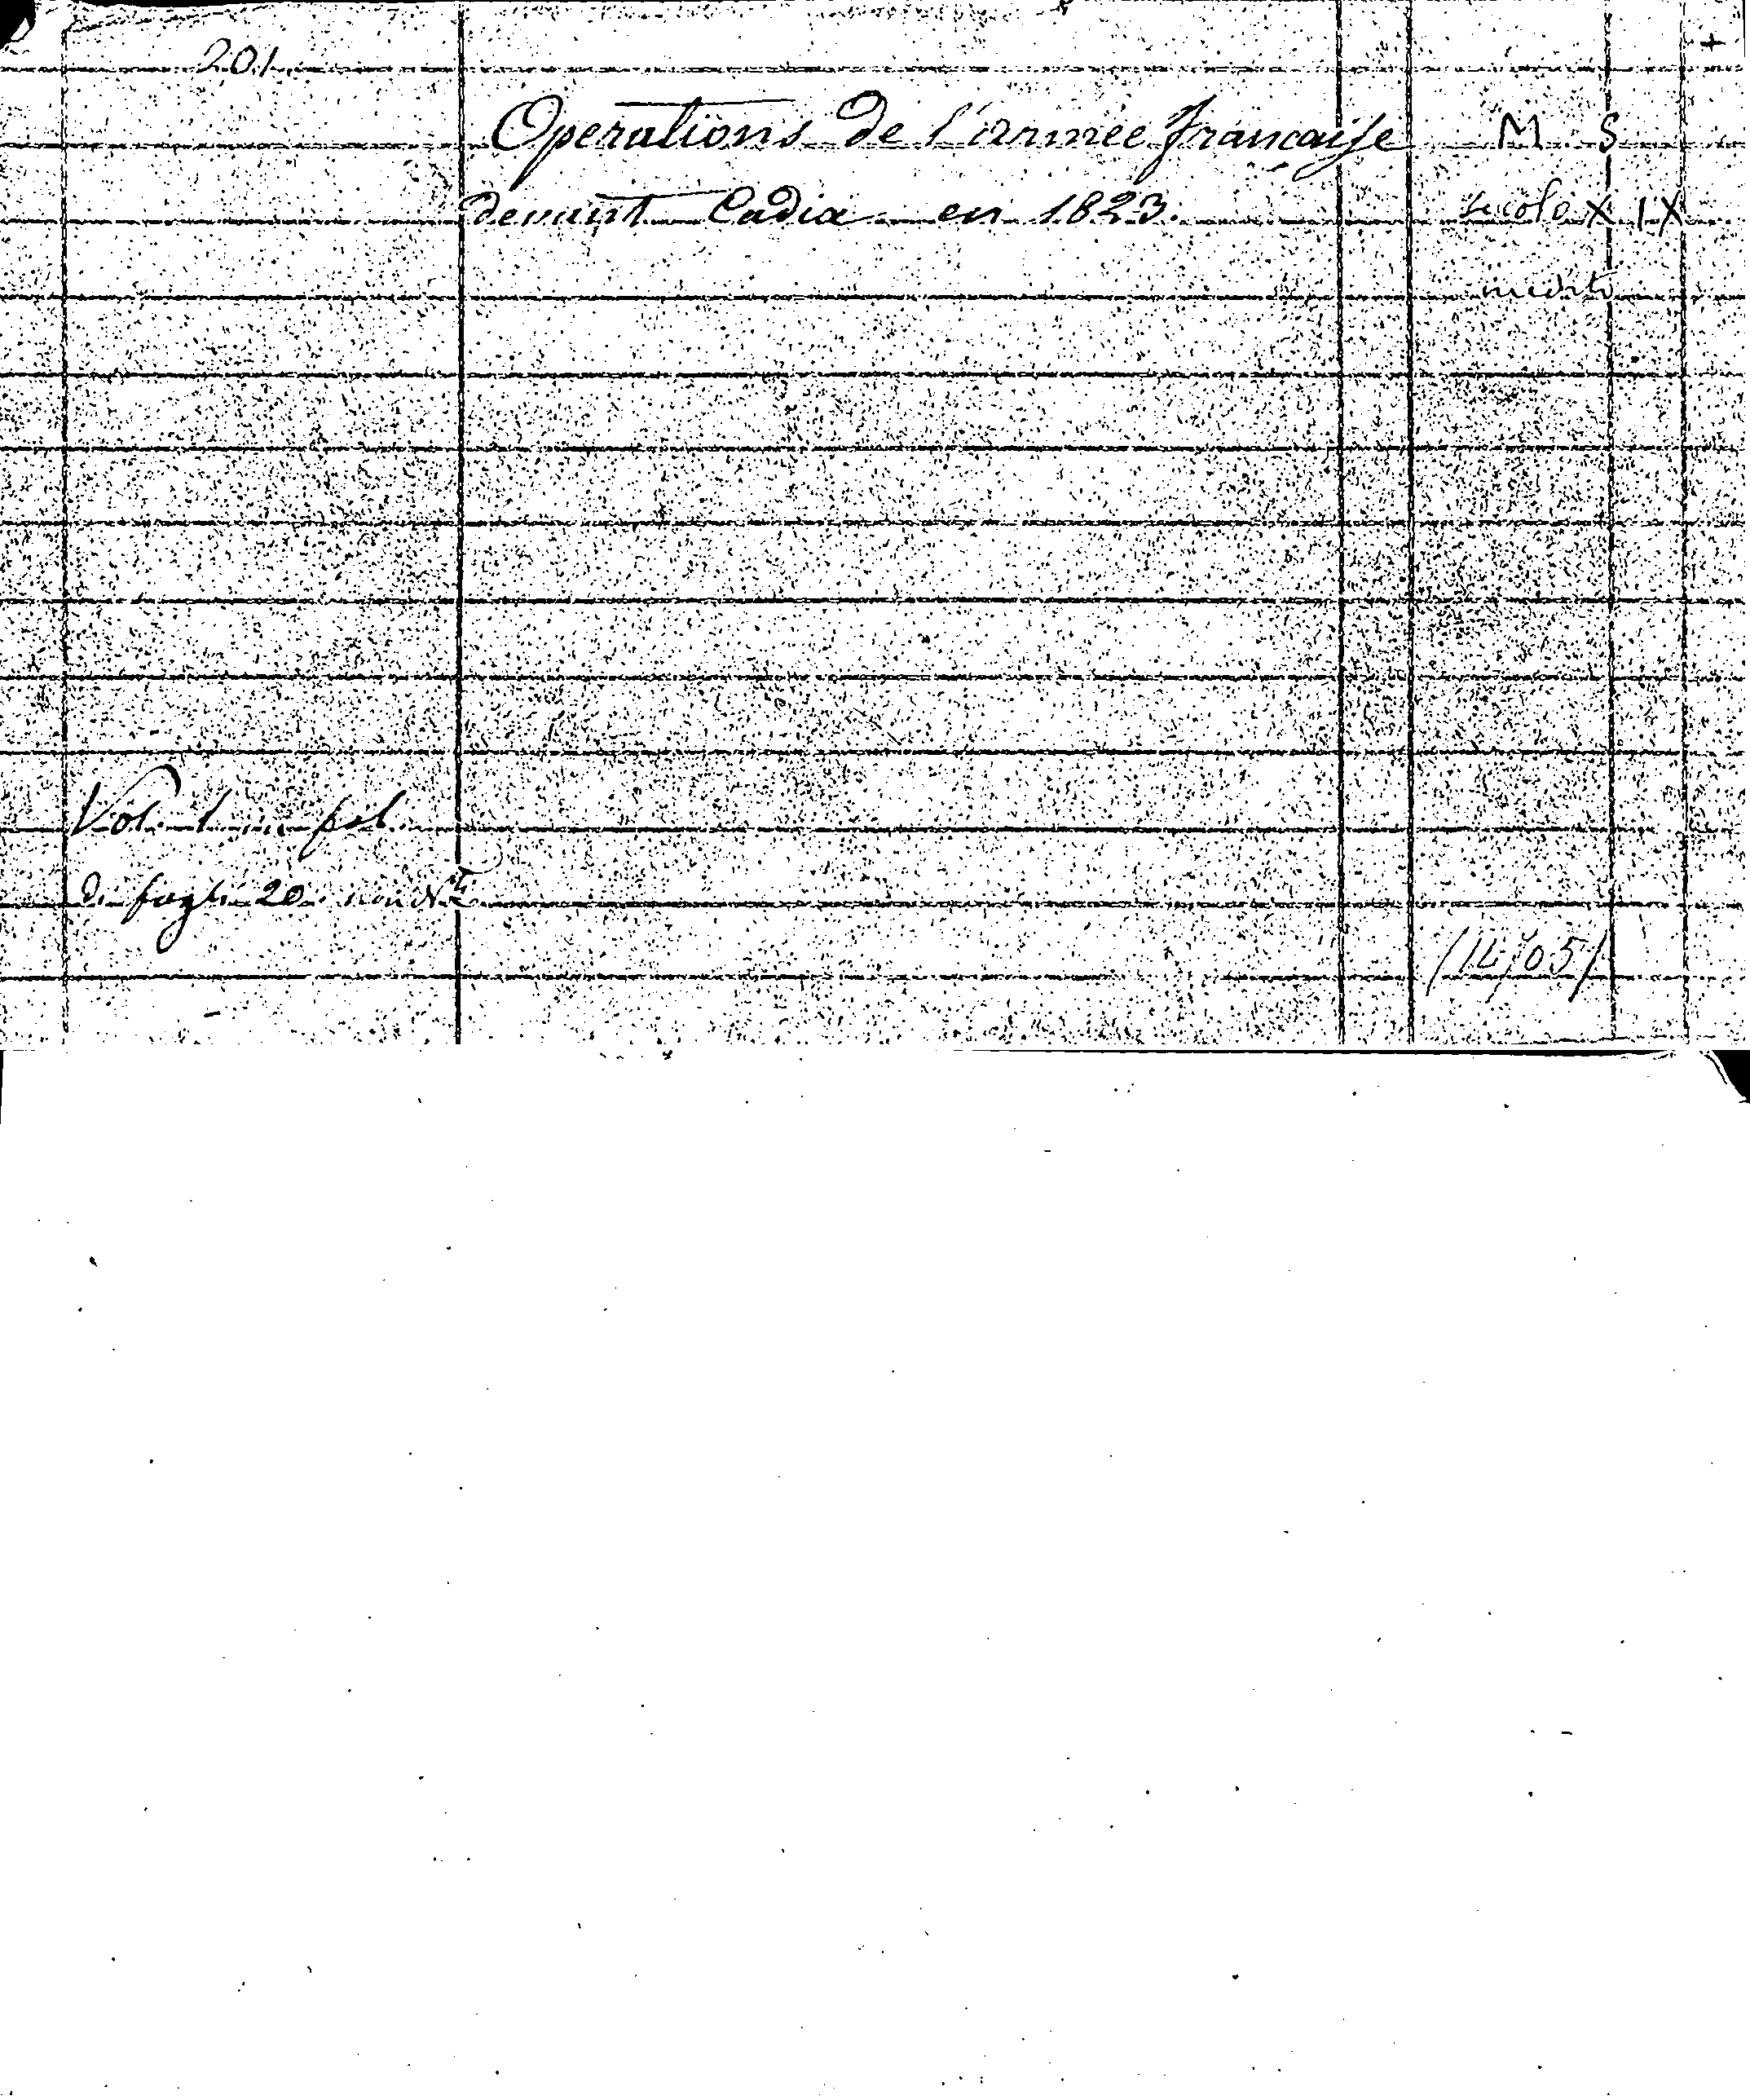 201
Operations de l'armée francaise M S
devant Cadix en 1823. secolo XIX
inedito
Vol. 1 in fol.
di fogli 20. non Nti
(14/05)